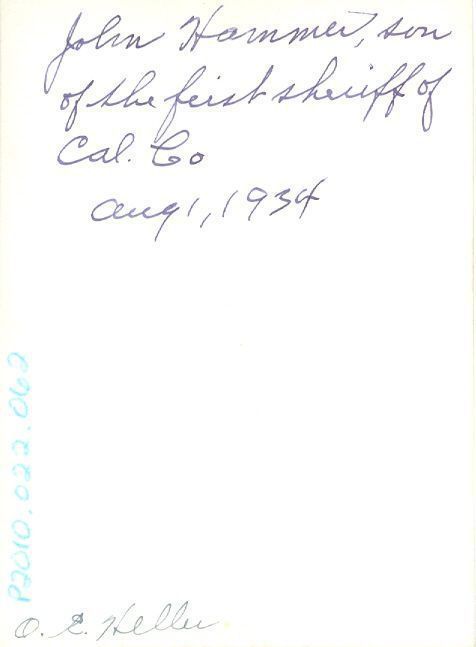 John Hammer, son
of the first sheriff of
Cal. Co
Aug 1, 1934
P2010.022.062
O. E. Heller